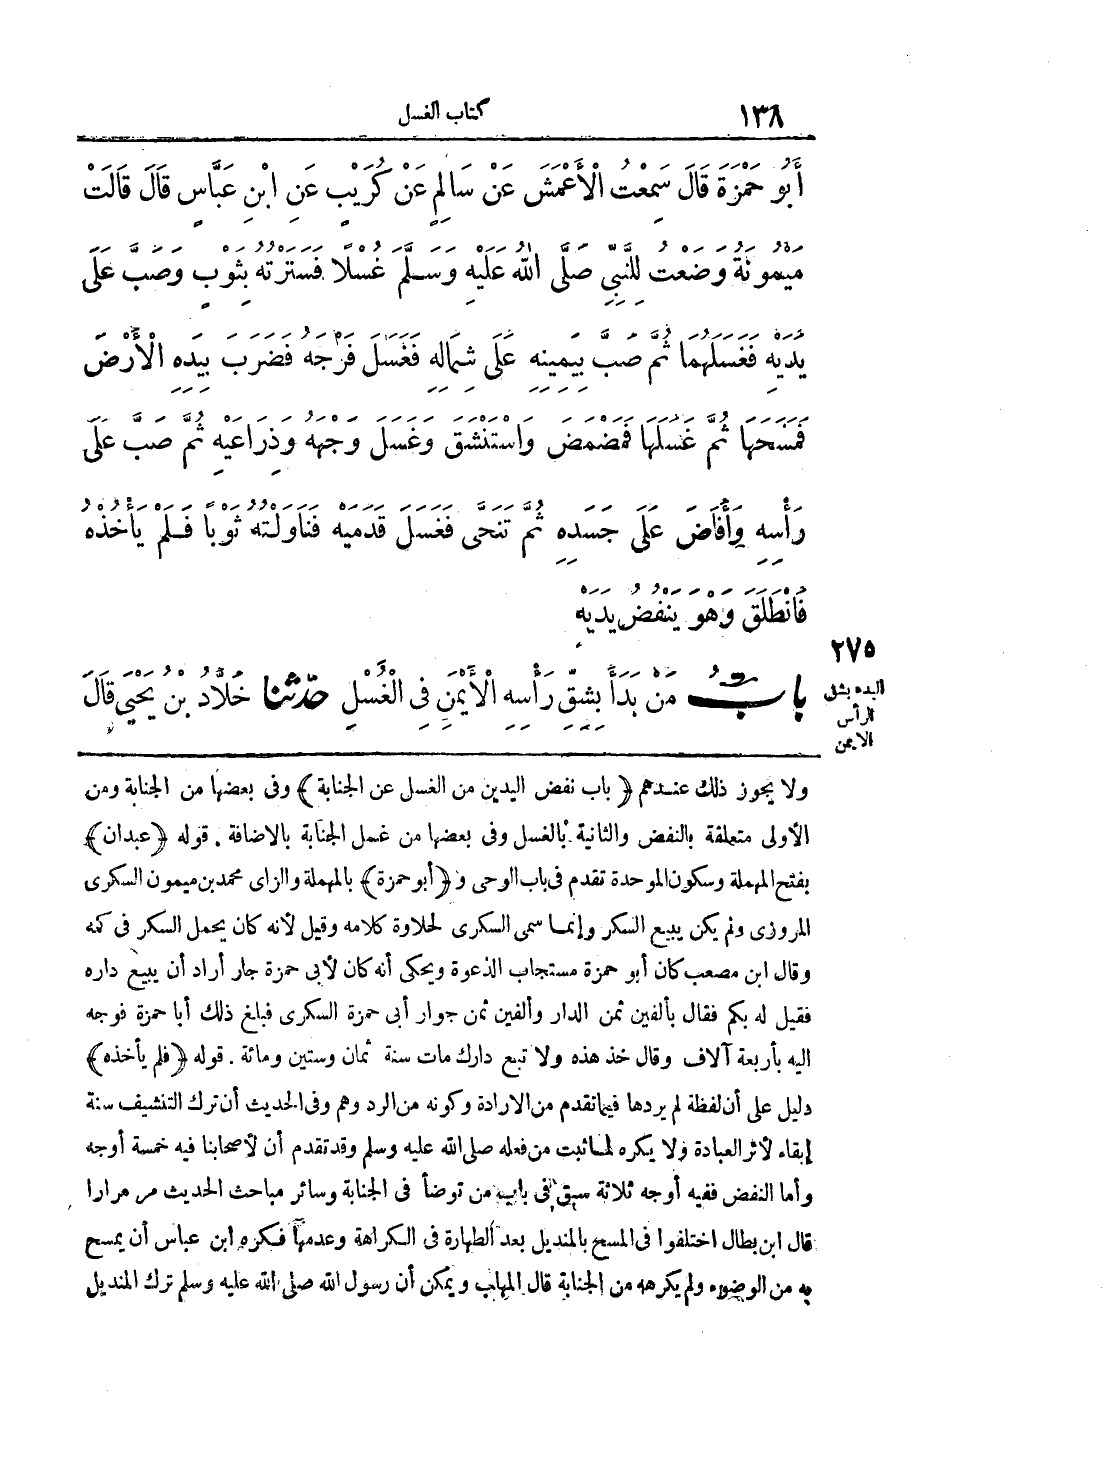 ١٣٨
كتاب الغسل
أَبُو حَمْزَةَ قَالَ سَمِعْتُ الْأَعْمَشَ عَنْ سَالِمٍ عَنْ كُرَيْبٍ عَنِ ابْنِ عَبَّاسٍ قَالَ قَالَتْ
مَيْمُونَةُ وَضَعْتُ لِلنَّبِيِّ صَلَّى اللهُ عَلَيْهِ وَسَلَّمَ غُسْلًا فَسَتَرْتُهُ بِثَوْبٍ وَصَبَّ عَلَى
يَدَيْهِ فَغَسَلَهُمَا ثُمَّ صَبَّ بِيَمِينِهِ عَلَى شِمَالِهِ فَغَسَلَ فَرْجَهُ فَضَرَبَ بِيَدِهِ الْأَرْضَ
فَمَسَحَهَا ثُمَّ غَسَلَهَا فَمَضْمَضَ وَاسْتَنْشَقَ وَغَسَلَ وَجْهَهُ وَذِرَاعَيْهِ ثُمَّ صَبَّ عَلَى
رَأْسِهِ وَأَفَاضَ عَلَى جَسَدِهِ ثُمَّ تَنَحَّى فَغَسَلَ قَدَمَيْهِ فَنَاوَلْتُهُ ثَوْبًا فَلَمْ يَأْخُذْهُ
فَانْطَلَقَ وَهْوَ يَنْفُضُ يَدَيْهِ
٢٧٥
البدء بشق
الرأس
الايمن
بابُ مَنْ بَدَأَ بِشِقِّ رَأْسِهِ الْأَيْمَنِ فِي الْغُسْلِ حدثنا خَلَّادُ بْنُ يَحْيَى قَالَ
ولا يجوز ذلك عندهم ﴿ باب نفض اليدين من الغسل عن الجنابة ﴾ وفى بعضها من الجنابة ومن
الأولى متعلقة بالنفض والثانية بالغسل وفى بعضها من غسل الجنابة بالاضافة . قوله ﴿عبدان﴾
بفتح المهملة وسكون الموحدة تقدم فى باب الوحى و ﴿أبو حمزة﴾ بالمهملة والزاى محمد بن ميمون السكرى
المروزى ولم يكن يبيع السكر وإنما سمى السكرى لحلاوة كلامه وقيل لأنه كان يحمل السكر فى كمه
وقال ابن مصعب كان أبو حمزة مستجاب الدعوة ويحكى أنه كان لأبى حمزة جار أراد أن يبيع داره
فقيل له بكم فقال بألفين ثمن الدار وألفين ثمن جوار أبى حمزة السكرى فبلغ ذلك أبا حمزة فوجه
اليه بأربعة آلاف وقال خذ هذه ولا تبع دارك مات سنة ثمان وستين ومائة . قوله ﴿فلم يأخذه﴾
دليل على أن لفظة لم يردها فيما تقدم من الارادة وكونه من الرد وهم وفى الحديث أن ترك التنشيف سنة
إبقاء لأثر العبادة ولا يكره لما ثبت من فعله صلى الله عليه وسلم وقد تقدم أن لأصحابنا فيه خمسة أوجه
وأما النفض ففيه أوجه ثلاثة سبق فى باب من توضأ فى الجنابة وسائر مباحث الحديث مر مرارا
قال ابن بطال اختلفوا فى المسح بالمنديل بعد الطهارة فى الكراهة وعدمها فكره ابن عباس أن يمسح
به من الوضوء ولم يكرهه من الجنابة قال المهلب ويمكن أن رسول الله صلى الله عليه وسلم ترك المنديل